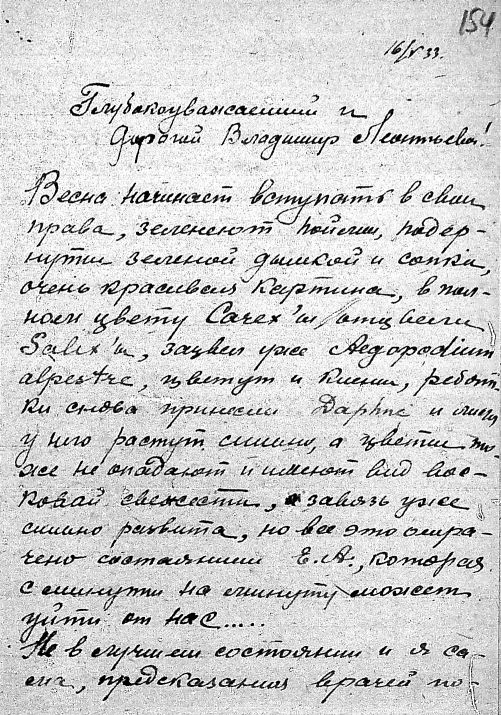 154
16/V 33.
Глубокоуважаемый и
Дорогой Владимир Леонтьевич!
Весна начинает вступать в свои
права, зеленеют поймы, подер-
нуты зеленой дымкой и сопки,
очень красивая картина, в пол-
ном цвету Carex'ы, отцвели
Salix'ы, зацвел уже Aegopodium
alpestre, цветут и клены, ребят-
ки снова принесли Daphne и листья
у него растут сильно, а цветы то-
же не опадают и имеют вид вос-
ковой свежести, а завязь уже
сильно развита, но все это омра-
чено состоянием Е.А., которая
с минуты на минуту может
уйти от нас.....
Не в лучшем состоянии и я са-
ма, предсказания врачей по-